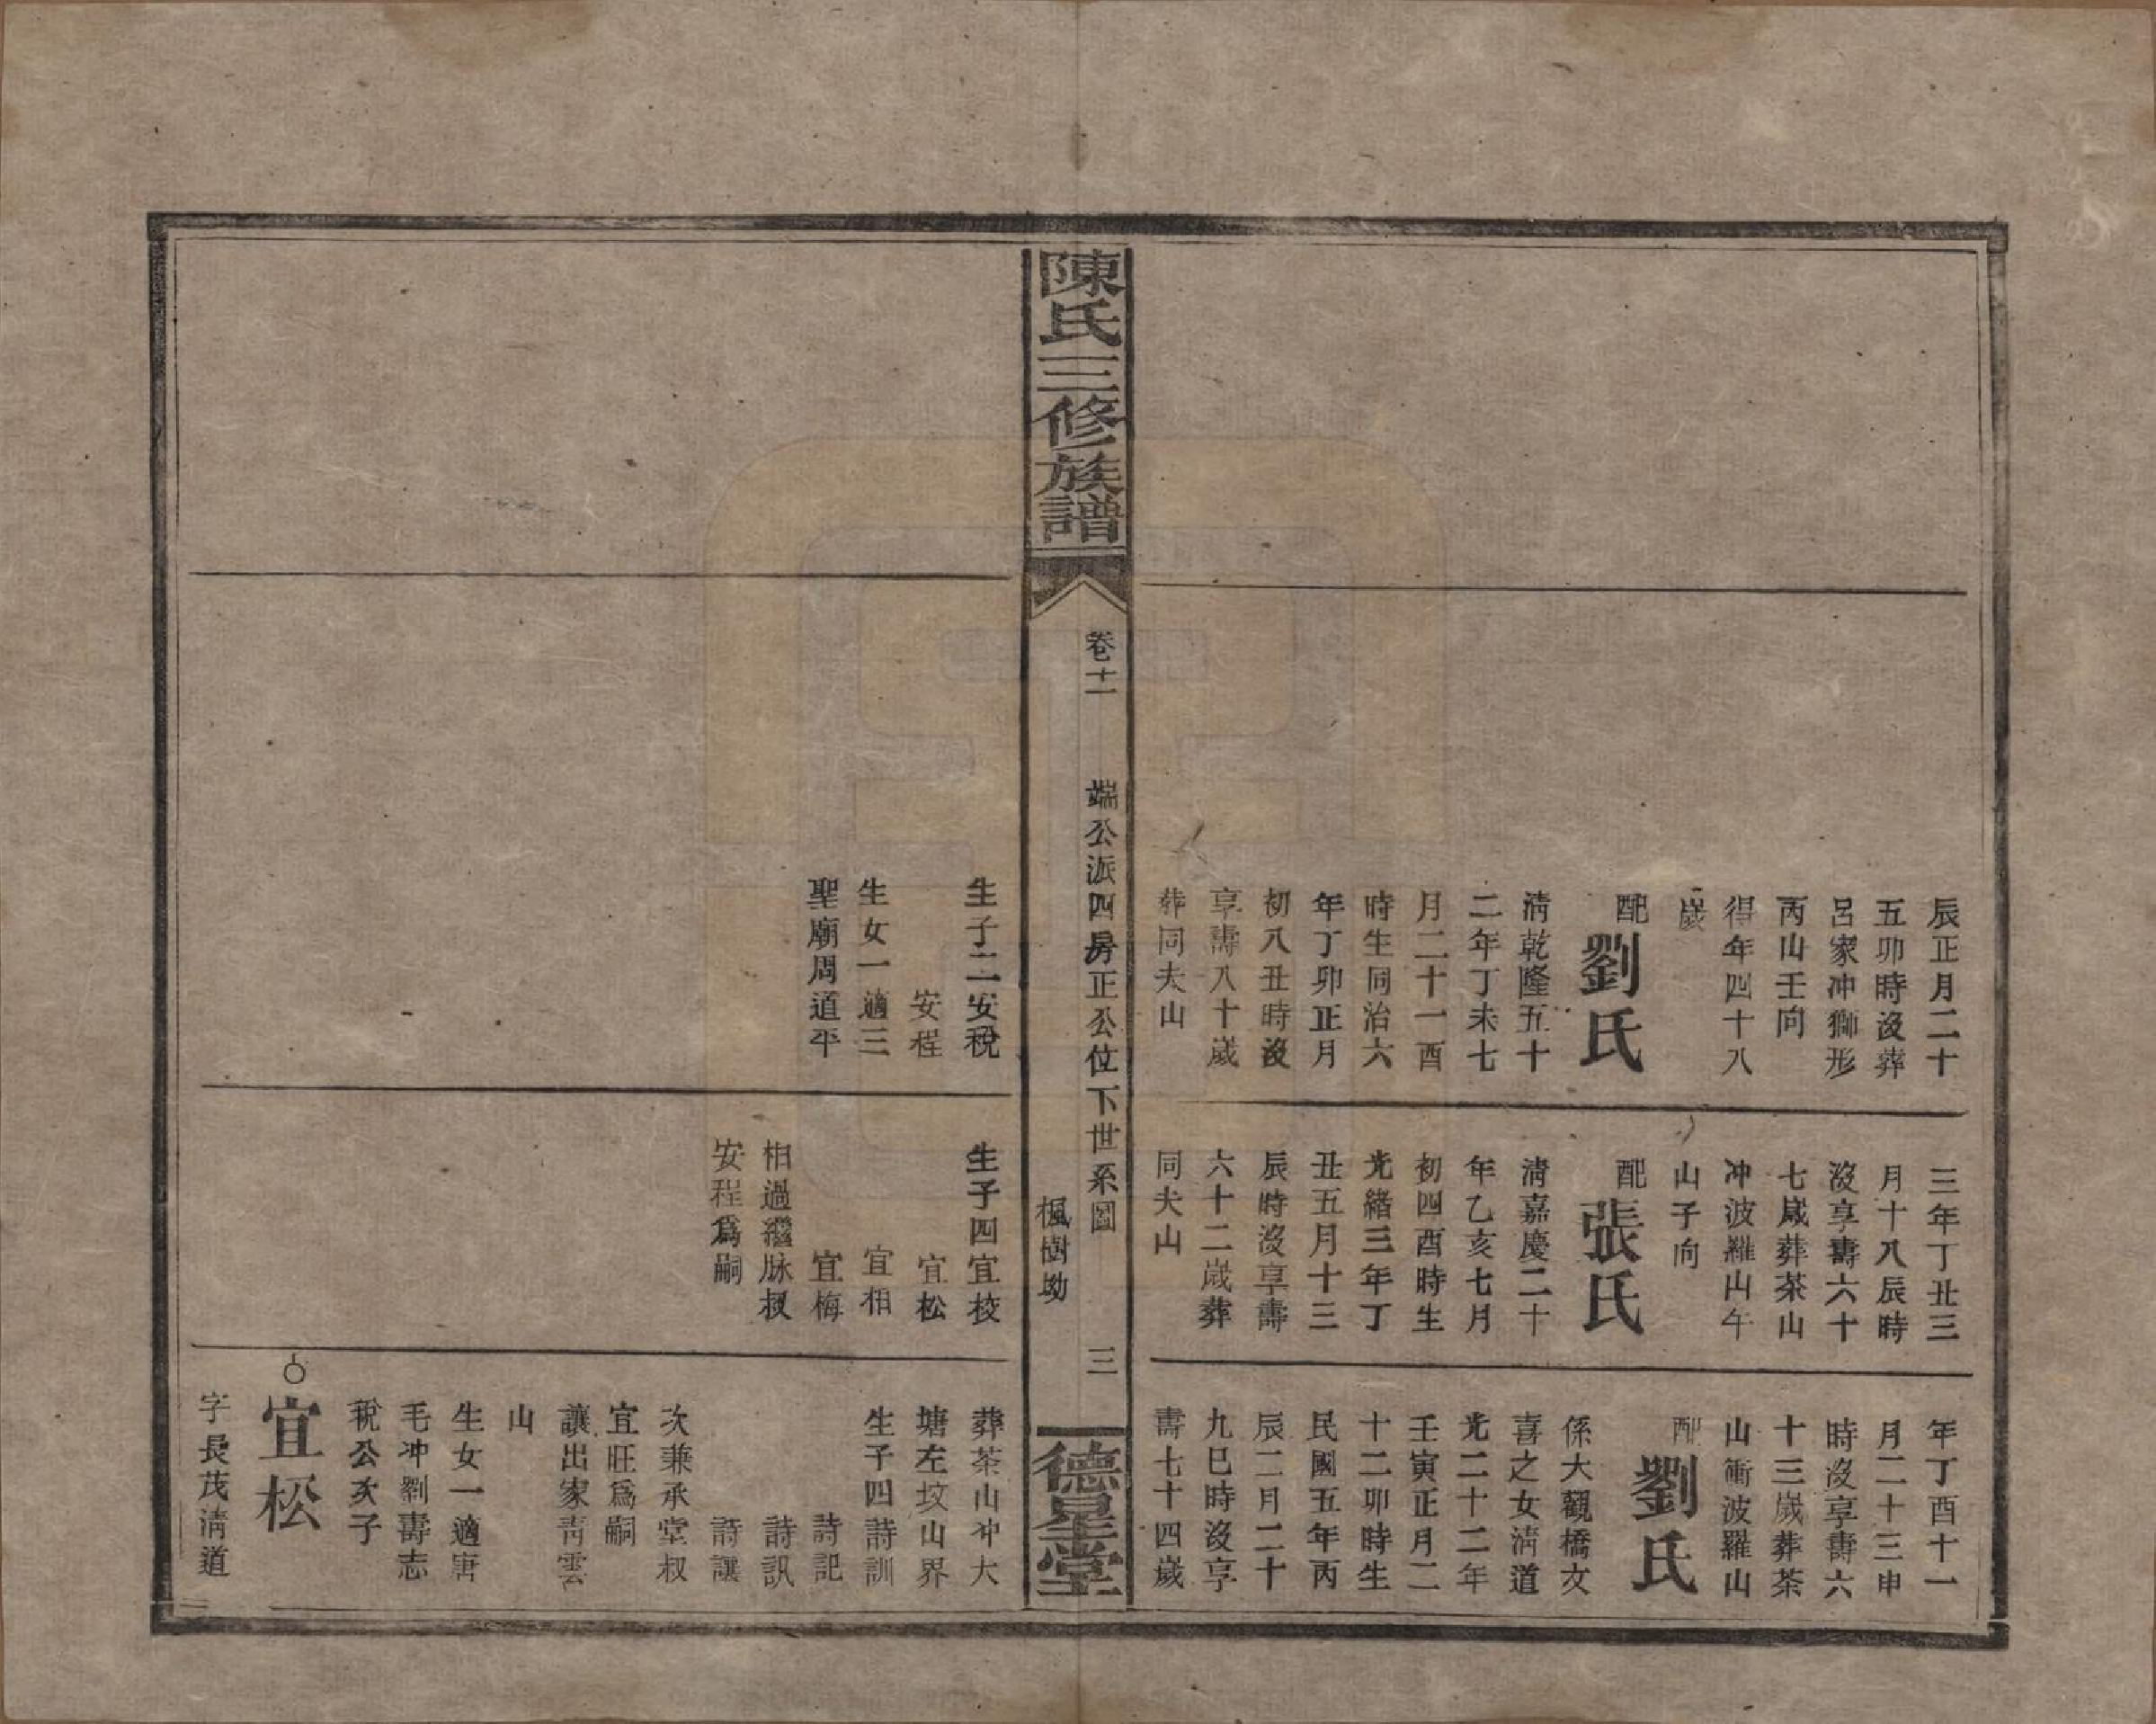 辰正月二十
五卯時沒葬
呂家冲獅形
丙山壬向
得年四十八
歲
配劉氏
淸乾隆五十
二年丁未七
月二十一酉
時生同治六
年丁卯正月
初八丑時沒
享壽八十歲
葬同夫山
三年丁丑三
月十八辰時
沒享壽六十
七歲葬茶山
冲波羅山午
山子向
配張氏
淸嘉慶二十
年乙亥七月
初四酉時生
光緒三年丁
丑五月十三
辰時沒享壽
六十二歲葬
同夫山
年丁酉十一
月二十三申
時沒享壽六
十三歲葬茶
山衝波羅山
配劉氏
係大觀橋文
喜之女淸道
光二十二年
壬寅正月二
十二卯時生
民國五年丙
辰二月二十
九巳時沒享
壽七十四歲
陳氏三修族譜
卷十一
端公派四房正公位下世系圖
楓樹坳
三
德星堂
生子二安稅
安程
生女一適三
聖廟周道平
生子四宜校
宜松
宜相
宜梅
相過繼脉叔
安程爲嗣
葬茶山冲大
塘左坟山界
生子四詩訓
詩記
詩訊
詩讓
次兼承堂叔
宜旺爲嗣
讓出家靑雲
山
生女一適唐
毛冲劉壽志
稅公次子
宜松
字長茂淸道